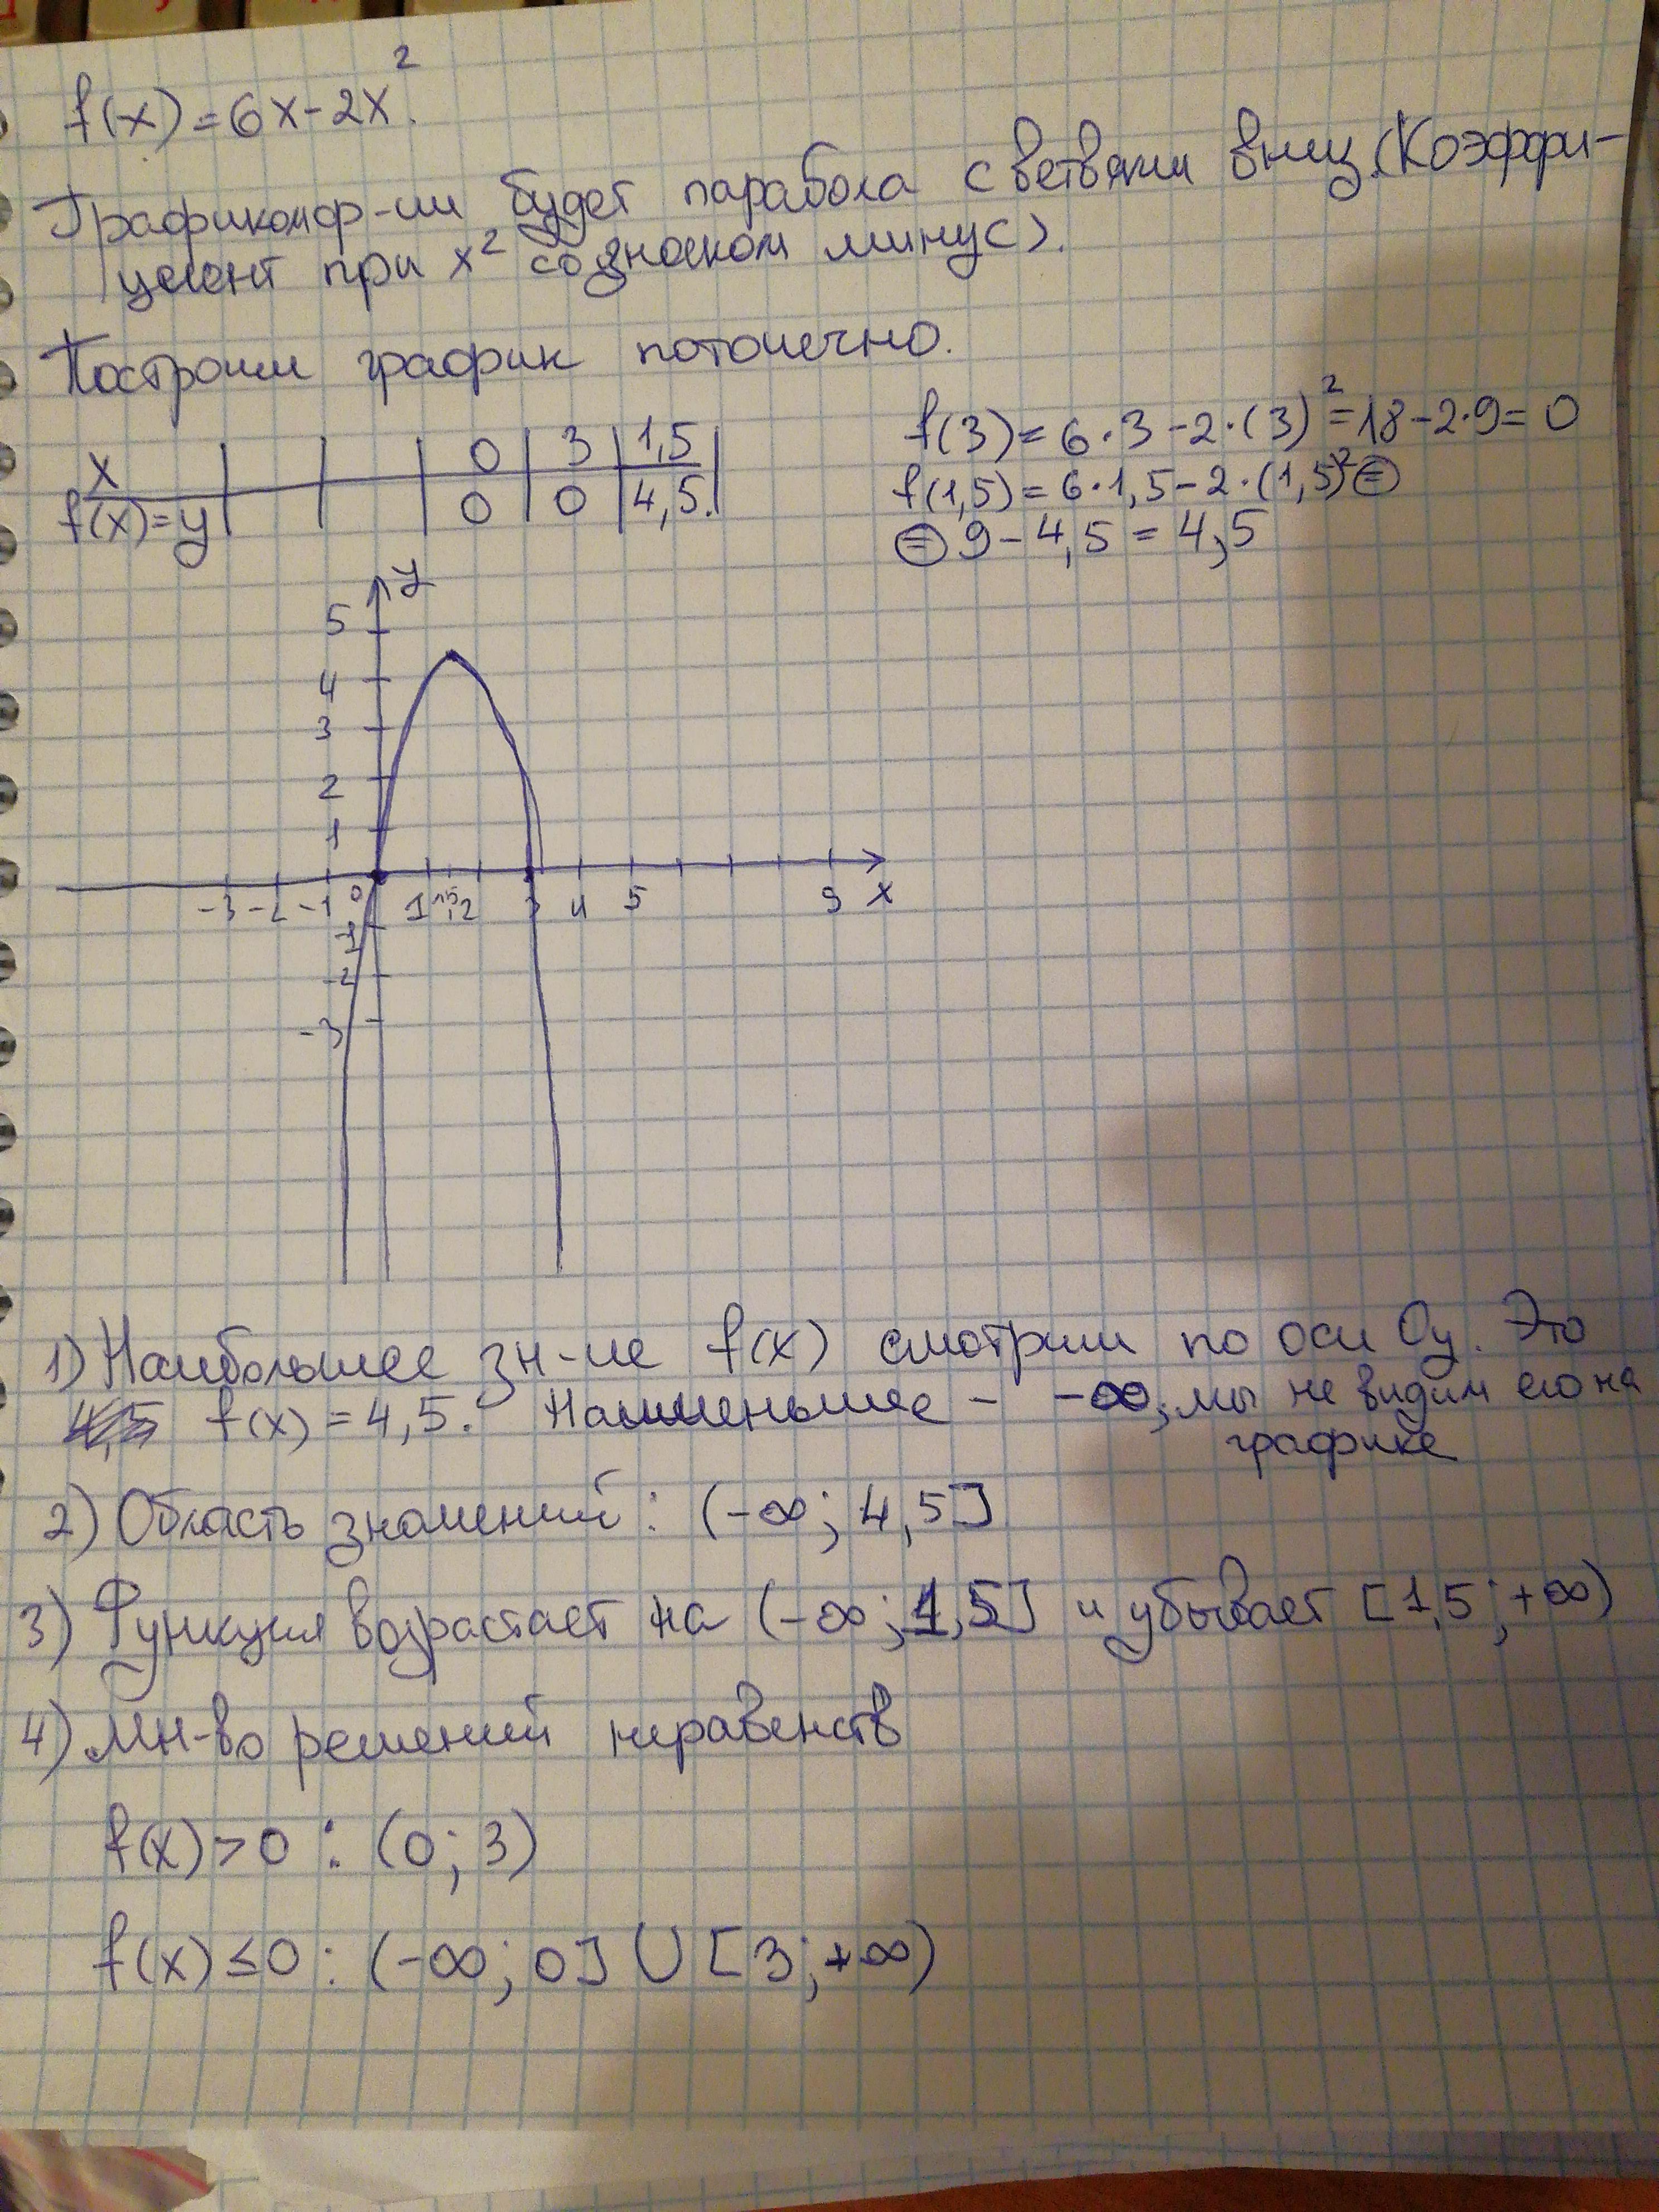 f(x)=6x-2x².
Графиком ф-ии будет парабола с ветвями вниз (Коэффи-
циент при x² со знаком минус).
Построим график поточечно.
x 0 3 1,5
f(x)=y 0 0 4,5.
f(3)=6·3-2·(3)²=18-2·9=0
f(1,5)=6·1,5-2·(1,5)²=
=9-4,5=4,5
y
5
4
3
2
1
-3 -2 -1 0 1 1,5 2 3 4 5 9 x
-1
-2
-3
1) Наибольшее зн-ие f(x) смотрим по оси Oy. Это
4,5 f(x)=4,5. Наименьшее - -∞, мы не видим его на
графике
2) Область значений: (-∞; 4,5]
3) Функция возрастает на (-∞; 1,5] и убывает [1,5; +∞)
4) Мн-во решений неравенств
f(x)>0 : (0; 3)
f(x)≤0 : (-∞; 0] ∪ [3; +∞)